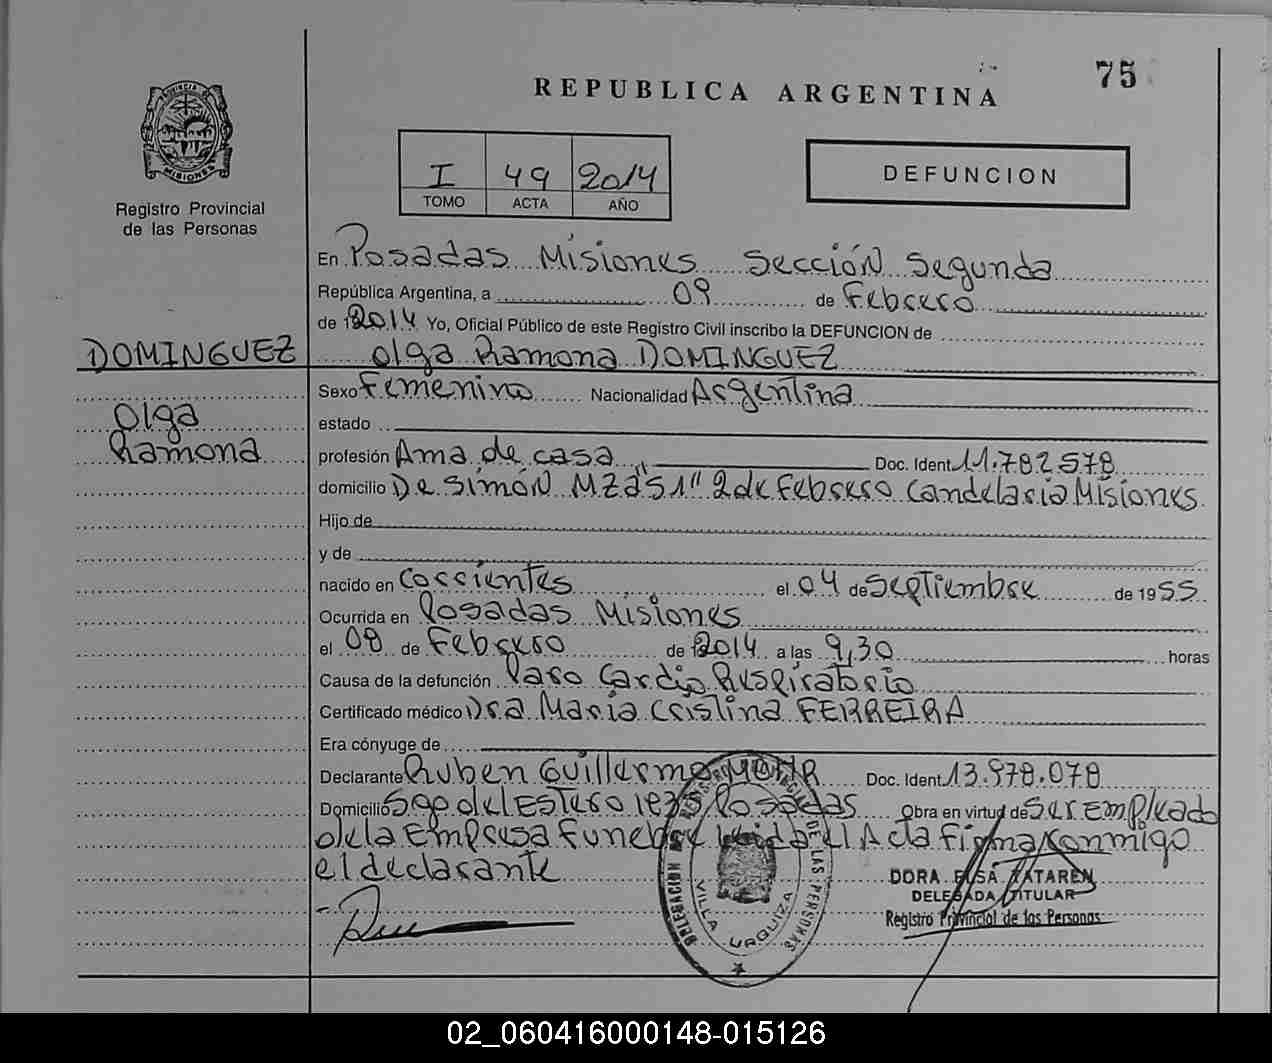 75
REPUBLICA ARGENTINA
PROVINCIA DE
MISIONES
Registro Provincial
de las Personas
I 49 2014
TOMO ACTA AÑO
DEFUNCION
En Posadas Misiones Sección Segunda
República Argentina, a 09 de Febrero
de 2014 Yo, Oficial Público de este Registro Civil inscribo la DEFUNCION de
DOMINGUEZ
Olga Ramona DOMINGUEZ
Olga
Ramona
Sexo Femenino Nacionalidad Argentina
estado
profesión Ama de casa Doc. Ident. 11.782.578
domicilio De Simón MZ 251" 2 de Febrero Candelaria Misiones
Hijo de
y de
nacido en Corrientes el 04 de Septiembre de 1955
Ocurrida en Posadas Misiones
el 08 de Febrero de 2014 a las 9,30 horas
Causa de la defunción Paro Cardio Respiratorio
Certificado médico Dra Maria Cristina FERREIRA
Era cónyuge de
Declarante Ruben Guillermo Doc. Ident. 13.978.078
Domicilio Sgo del Estero 1835 Posadas Obra en virtud de Ser Empleado
de la Empresa Funebre Leida el Acta Firma Conmigo
el declarante
DORA ELSA TATAREN
DELEGADA TITULAR
Registro Provincial de las Personas
DELEGACION DE LAS PERSONAS
VILLA URQUIZA
02_060416000148-015126